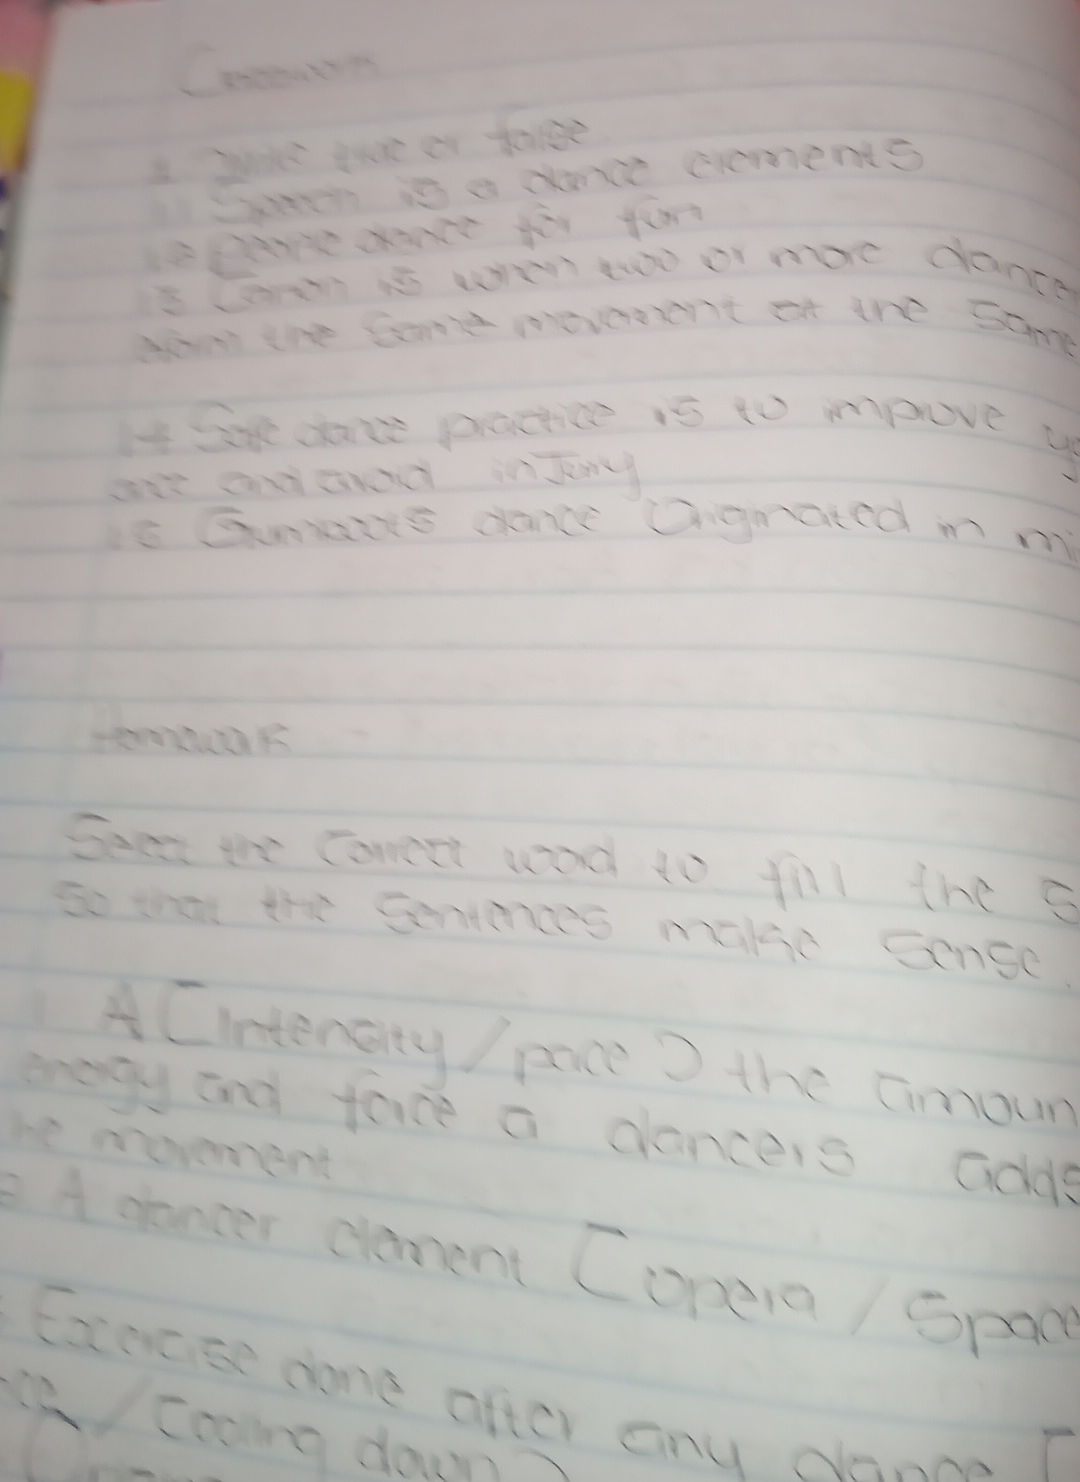 Classwork
1 Write true or false
1.1 Speech is a dance elements
1.2 People dance for fun
1.3 Canon is when two or more dancer
the same movement at the same
1.4 Safe dance practice is to improve
and avoid injury
1.5 dance Originated in
Homework
Select the correct word to fill the s
so that the sentences make sense.
1 A [intensity / pace] the amoun
energy and force a dancers adds
movement
2 A dancer element [opera / Space
Exercise done after any dance [
/ Cooling down]